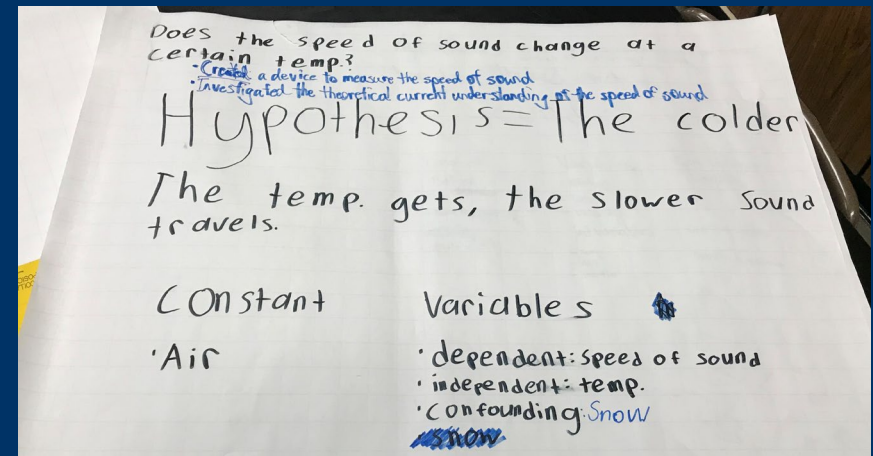 Does the speed of sound change at a
certain temp.?
· Created a device to measure the speed of sound
· Investigated the theoretical current understanding of the speed of sound
Hypothesis = The colder
The temp. gets, the slower sound
travels.
Constant Variables
· Air · dependent: speed of sound
· independent: temp.
· confounding: Snow
snow